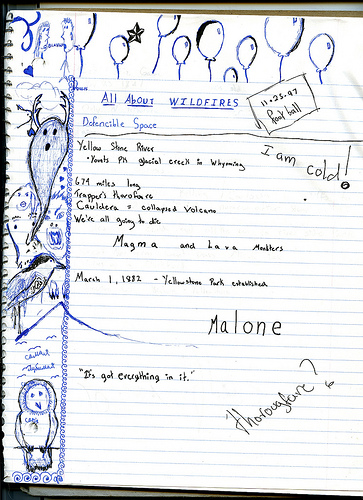 All About WILDFIRES
11.25.97
foot ball
Defencible Space
I am cold!
Yellow Stone River
• Younts Pk glacial creek in Whyoming
674 miles long
Trapper's thorofare
Cauldera = collapsed volcano
We're all going to die
Magma and Lava Monsters
March 1, 1982 - Yellowstone Park established
Malone
"It's got everything in it."
thoroughfare?